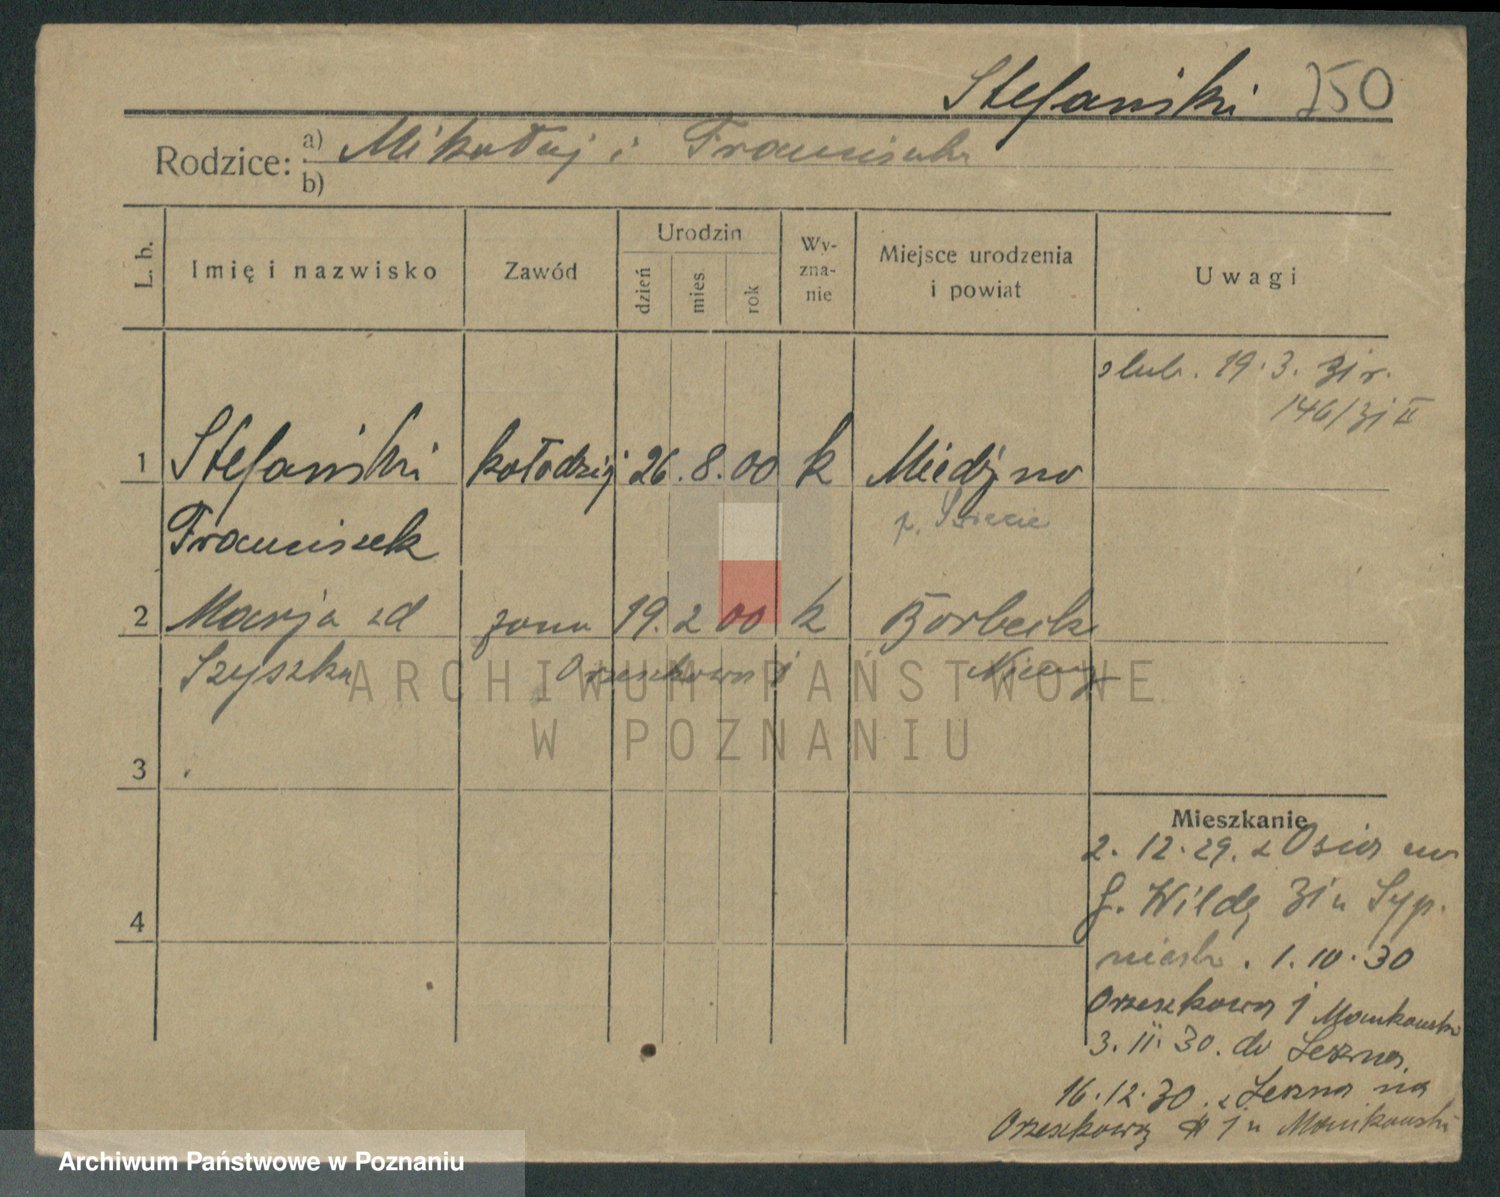 Stefański 250
Rodzice: a) Mikołaj i Franciszka
b)
L. b.
Imię i nazwisko
Zawód
Urodzin
dzień
mies
rok
Wy-
zna-
nie
Miejsce urodzenia
i powiat
Uwagi
slub. 19.3. 31 r.
146/31 II
1 Stefański kołodziej 26.8.00 k
p. Świecie
Franciszek
2 Marja zd żona 19.2 00 k Borbeck
Szyszka Orzeszkowa 1 Niemcy
ARCHIWUM PAŃSTWOWE
W POZNANIU
3
4
Mieszkanie
2.12.29. z Osia
G. Wildę 31 u Syp.
1.10.30
Orzeszkowa 1 Mańkowski
3.11.30. do Leszna
16.12.30. z Leszna na
Orzeszkową 1 u Mańkowski
Archiwum Państwowe w Poznaniu